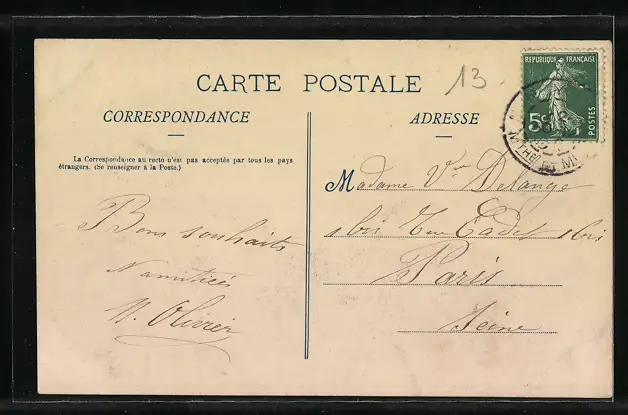 CARTE POSTALE
13
CORRESPONDANCE
ADRESSE
REPUBLIQUE FRANÇAISE
5c
POSTES
La Correspondance au recto n'est pas acceptée par tous les pays
étrangers. (Se renseigner à la Poste.)
Bons souhaits
N amitiés
Olivier
Madame Vve Delange
1 bis Rue Cadet 1 bis
Paris
Seine